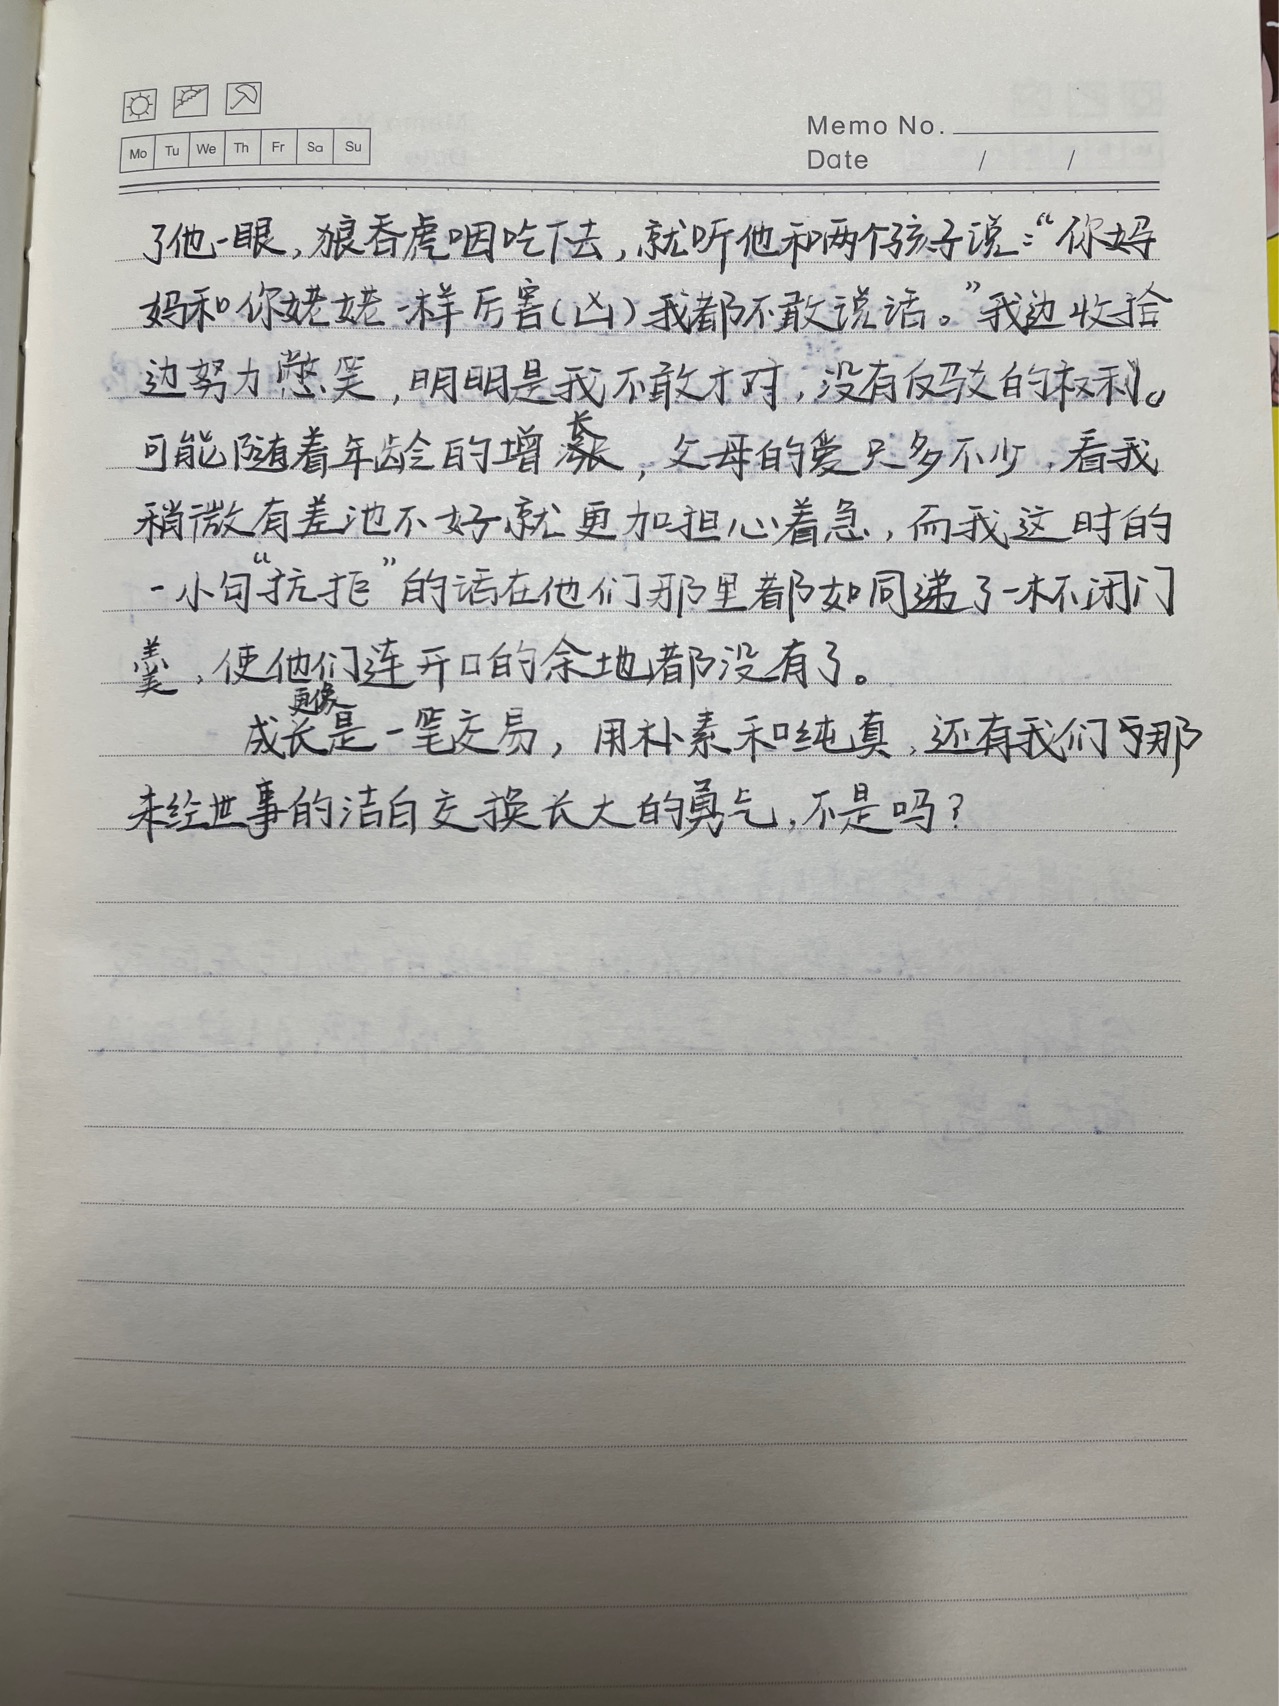 Mo Tu We Th Fr Sa Su
Memo No.
Date / /
了他一眼，狼吞虎咽吃下去，就听他和两个孩子说：“你妈
妈和你姥姥一样厉害（凶）我都不敢说话。”我边收拾
边努力憋笑，明明是我不敢才对，没有反驳的权利。
可能随着年龄的增长，父母的爱只多不少，看我
稍微有差池不好就更加担心着急，而我这时的
一小句“抗拒”的话在他们那里都如同递了一杯闭门
羹，使他们连开口的余地都没有了。
成长更像是一笔交易，用朴素和纯真，还有我们与那
未经世事的洁白交换长大的勇气，不是吗？